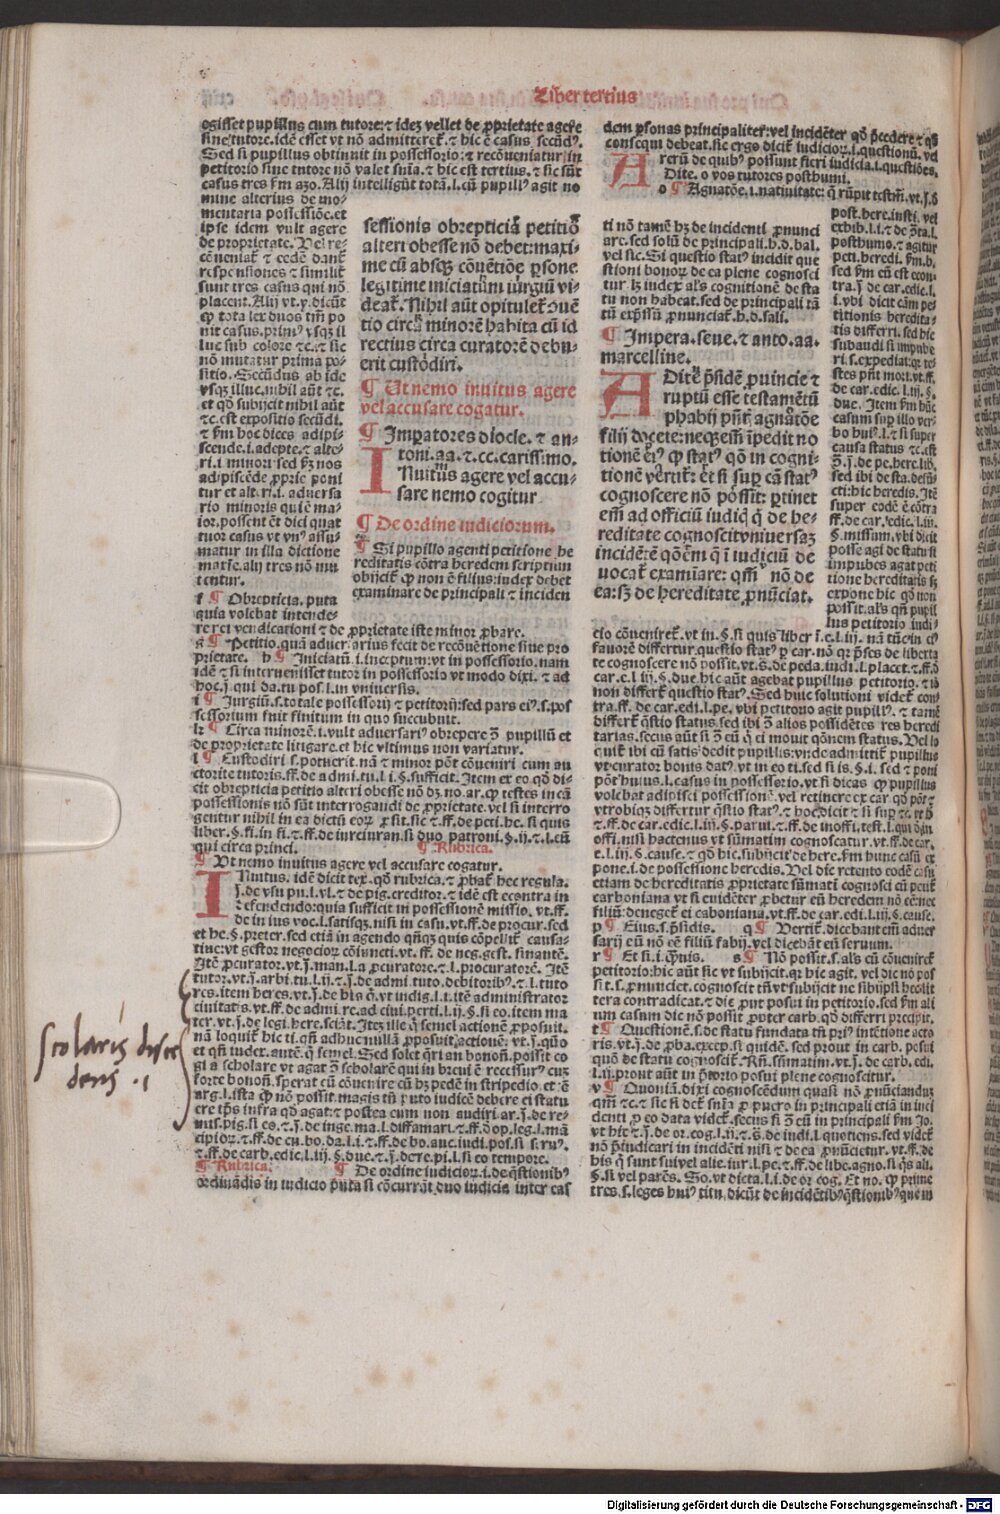 Liber tertius
ogisset pupillus cum tutore: ⁊ idez vellet de ꝓprietate agere
sine tutore. idē esset vt nō admitteret᷑. ⁊ hic ē casus secūdꝰ.
Sed si pupillus obtinuit in possessorio: ⁊ recōueniatur in
petitorio sine tutore nō valet sn̄ia. ⁊ hic est tertius. ⁊ sic sūt
casus tres ẜm azo. Alij intelligūt totā. l. cū pupillꝰ agit no
mine alterius de mo-
mentaria possessiōe. et
ipse idem vult agere
de proprietate. Vel re-
cōueniat᷑ ⁊ eedē dant᷑
responsiones ⁊ similit᷑
sunt tres casus qui nō
placent. Alij vt. y. dicūt
ꝙ tota lex duos tm̄ po
nit casus. primꝰ vsqꝫ il
luc sub colore ⁊c. ⁊ sic
nō mutatur prima po-
sitio. Secūdus ab ide
vsqꝫ illuc. nihil aūt ⁊c.
et qd̓ subijcit nihil aūt
⁊c. est expositio secūdi.
⁊ ẜm hoc dices adipi-
scende. i. adepte. ⁊ alte-
ri. i. minori sed ẜꝫ nos
adipiscēde ꝓprie poni
tur et alt. ri. i. aduersa
rio minoris quiē ma-
ior. possent ēt dici quat
tuor casus vt vnꝰ assu-
matur in illa dictione
maxīe. alij tres nō mu
tentur.
sessionis obrepticia petitiō
alteri obesse nō debet: maxi-
me cū absqꝫ cōuētiōe ꝑsone
legitime iniciatum iurgiū vi-
deat᷑. Nihil aūt opitulet᷑ ↄuē
tio circa minorē habita cū id
rectius circa curatorē debu-
erit custodiri.
¶ Ut nemo inuitus agere
vel accusare cogatur.
¶ Impatores diocle. ⁊ an-
toni. aa. ⁊. cc. carissimo.
INuitus agere vel accu-
sare nemo cogitur
¶ De ordine iudiciorum.
¶ Si pupillo agenti petitione he
reditatis cōtra heredem scriptum
obijcit᷑ ꝙ non ē filius: iudex debet
examinare de principali ⁊ inciden
f ¶ Obrepticia. puta
quia volebat intende-
re rei vendicationi ⁊ de ꝓprietate iste minor ꝓbare.
g ¶ Petitio. quā aduersarius fecit de recōuētione siue pro
prietate. h ¶ Iniciatū. i. inceptum: vt in possessorio. nam
idē ⁊ si interuenisset tutor in possessorio vt modo dixi. ⁊ ad
hoc. j. qui da. tu. pos. l. in vniuersis.
i ¶ Iurgiū. s. totale possessorij ⁊ petitorij: sed pars eiꝰ. s. pos
sessorium fuit finitum in quo succubuit.
k ¶ Circa minorē. i. vult aduersariꝰ obrepere ↄ̄ pupillū et
de proprietate litigare. et hic vltimus non variatur.
l ¶ Custodiri s. potuerit. nā ⁊ minor pōt cōueniri cum au
ctorite tutoris. ff. de admi. tu. l. i. §. sufficit. Item ex eo qd̓ di-
cit obrepticia petitio alteri obesse nō dꝫ. no. ar. ꝙ testes in cā
possessionis nō sūt interrogandi de ꝓprietate. vel si interro
gentur nihil in ea dictū eoꝝ ꝓsit. sic ⁊ ff. de peti. he. si quis
liber. §. fi. in fi. ⁊. ff. de iureiuran. si duo patroni. §. ij. ⁊. l. cū
qui circa princi. ¶ Rubrica.
¶ Ut nemo inuitus agere vel accusare cogatur.
INuitus. idē dicit tex. qd̓ rubrica. ⁊ ꝓbat᷑ hec regula.
j. de vsu pu. l. vl. ⁊ de pig. creditor. ⁊ idē est econtra in
defendendo: quia sufficit in possessionē missio. vt. ff.
de in ius voc. l. satisqꝫ. nisi in casu. vt. ff. de procur. sed
et he. §. preter. sed etiā in agendo qn̄qꝫ quis cōpellit᷑ causa-
tiue: vt gestor negocioꝝ cōiuncti. vt. ff. de neg. ges. si nantē.
Itē ꝓcurator. vt. j. man. l. a ꝓcuratore. ⁊. l. procuratorē. Itē
tutor. vt. j. arbi. tu. l. ij. ⁊. j. de admi. tuto. debitoribꝰ. ⁊. l. tuto
res. item heres. vt. j. de his q̄. vt indig. l. i. itē administrator
ciuitatis. vt. ff. de admi. re. ad ciui. perti. l. ij. §. si eo. item ma
ter. vt. j. de legi. here. sciāt. Itez ille q̇ semel actionē ꝓposuit.
nā loquit᷑ hic ti. qn̄ adhuc nullā ꝓposuit actionē. vt. j. quō
et qn̄ iudex. autē. q̇ semel. Sed solet q̄ri an bononī. possit co
gi a scholare vt agat ↄ̄ scholarē qui in breui ē recessurꝰ cuz
forte bononī. sperat cū cōuenire cū hꝫ pedē in stripedio. et ē
arg. l. ista ꝙ nō possit. magis tn̄ puto iudicē debere ei statu
ere tp̄s infra qd̓ agat: ⁊ postea cum non audiri. ar. j. de re-
mis. pig. si eo. ⁊. j. de inge. ma. l. diffamari. ⁊. ff. d̓ op. leg. l. mā
cipioꝝ. ⁊. ff. de eu. ho. da. l. i. ⁊. ff. de bo. auc. iudi. pos. si. s. ruꝰ.
⁊. ff. de carb. edic. l. iij. §. due. ⁊. j. de re. pi. l. si eo tempore.
¶ Rubrica. ¶ De ordine iudicioꝝ. i. de q̄stionibꝰ
ordinādis in iudicio puta si cōcurrāt duo iudicia inter eas
scolaris disce
dens . i
dem ꝑsonas principalitꝭ: vel incidēter qd̓ p̄cedere ⁊ qd̓
consequi debeat. sic ergo dicit᷑ iudicioꝝ. i. questionū. vel
rerū de quibꝰ possunt fieri iudicia. i. questiões.
ADite. o vos tutores posthumi.
o ¶ Agnatōe. i. natiuitate: q̄ rūpit testm̄. vt. j. d̓
post. here. insti. vel
exhib. l. i. ⁊ de p̄ta. l.
posthumo. ⁊ agitur
peti. heredi. ẜm. b.
sed ẜm eū est econ-
tra. j. de car. edic. l.
i. vbi dicit cām pe-
titionis heredita-
tis differri. sed hic
subaudi si impube
ri. s. expediat: qꝛ te-
stes pn̄t mori. vt. ff.
de car. edic. l. iij. §.
due. Item ẜm hūc
casum suꝑ illo ver-
bo huiꝰ. l. ⁊ si super
causa status ⁊c. est
ↄ̄. j. de pe. here. lib.
sed ibi de sta. defū-
cti: hic heredis. Itē
super eodē ē cōtra
ff. de car. edic. l. iij.
§. missum. vbi dicit
posse agi de statu si
impubes agat peti
tione hereditatis sꝫ
expone hic qd̓ non
possit. als̄ qn̄ pupil
lus petitorio iudi-
ti nō tamē hꝫ de incidenti pronunci
are. sed solū de principali. h. d. bal.
vel sic. Si questio statꝰ incidit que
stioni bonoꝝ de ea plene cognosci
tur lꝫ iudex als̄ cognitionē de sta
tu non habeat. sed de principali tā
tū expssū ꝓnunciat᷑. h. d. sali.
¶ Impera. seue. ⁊ anto. aa.
marcelline.
ADite p̄sidē ꝓuincie ⁊
ruptū esse testamētū
phabij pn̄t agnatōe
filij docete: neqꝫ em̄ īpedit no
tionē eiꝰ ꝙ statꝰ qō in cogni-
tionē vertit᷑: et si suꝑ cā statꝰ
cognoscere nō possit: ꝑtinet
em̄ ad officiū iudicꝭ q̇ de he-
reditate cognoscit vniuersaz
incidētē qōem̄ q̄ ī iudiciū de
uocat᷑ examīare: qm̄ nō de
ea: sꝫ de hereditate ꝓnūciat.
cio cōueniret᷑. vt in. §. si quis liber ī. e. l. iij. nā tūc in eiꝰ
fauorē differtur. questio statꝰ ꝑ car. nō qꝛ p̄ses de liberta
te cognoscere nō possit. vt. s̄. de peda. iudi. l. placet. ⁊. ff. d̓
car. e. l. iij. §. due. hic aūt agebat pupillus petitorio. ⁊ iō
non differt᷑ questio statꝰ. Sed huic solutioni videt᷑ con-
tra. ff. de car. edi. l. pe. vbi petitorio agit pupillꝰ. ⁊ tamē
differt᷑ q̄stio status. sed ibi ↄ̄ alios possidētes res heredi
tarias. secus aūt si ↄ̄ eū q̇ ei mouit qōnem status. Vel lo
quit᷑ ibi cū satisdedit pupillus: vnde admittit᷑ pupillus
vt curator bonis datꝰ. vt in eo ti. sed si is. §. i. sed ⁊ poni
pōt huius. l. casus in possessorio. vt si dicas ꝙ pupillus
volebat adipisci possessionē. vel retinere ex car. qd̓ pōt ⁊
vtrobiqꝫ differtur q̄stio statꝰ. ⁊ hoc dicit ⁊ si suꝑ ⁊c. vt d̓
⁊. ff. de car. edic. l. iij. §. parui. ⁊. ff. de inoffi. test. l. qui d̓ in
offi. nisi hactenus vt sūmatim cognoscatur. vt. ff. de car.
e. l. iij. §. cause. ⁊ qd̓ hic subijcit de here. ẜm hunc casū ex
pone. i. de possessione heredis. Vel dic retento eodē casu
etiam de hereditatis ꝓprietate sūmatī cognosci cū petit᷑
carboniana vt si euidēter ꝓbetur eū heredem nō eē: nec
filiū: deneget᷑ ei caboniana. vt. ff. de car. edi. l. iij. §. cause.
p ¶ Eius. s. p̄sidis. q ¶ Vertit᷑. dicebant em̄ aduer
sarij eū nō eē filiū fabij. vel dicebāt eū seruum.
r ¶ Et si. i. q̄uis. s ¶ Nō possit. s. als̄ cū cōueniret᷑
petitorio: hic aūt sic vt subijcit. qꝛ hic agit. vel dic nō pos
sit. s. ꝓnunciet. cognoscit tn̄ vt subijcit ne sibijpsi hec lit
tera contradicat. ⁊ dic put posui in petitorio. sed ẜm ali
um casum dic nō possit ꝓpter carb. qd̓ differri precipit.
t ¶ Questionē. s. de statu fundata tn̄ priꝰ intētione acto
ris. vt. j. de pba. excep. si quidē. sed prout in carb. posui
quō de statu cognoscit᷑. Rn̄. sūmatim. vt. j. de carb. edi.
l. ij. prout aūt in p̄torio posui plene cognoscitur.
v ¶ Quoniā. dixi cognoscēdum quasi nō ꝓnūciandus
qm̄ ⁊c. ⁊ sic si d̓ct᷑ sn̄ia ꝓ puero in principali etiā in inci
denti ꝓ eo data videt᷑. secus si ↄ̄ eū in principali ẜm Jo.
vt hic ⁊. j. de or. cog. l. ij. ⁊. s̄. de iudi. l. quotiens. sed videt᷑
nō p̄iudicari in incidēti nisi ⁊ de ea ꝓnūcietur. vt. ff. de
his q̇ sunt sui vel alie. iur. l. pe. ⁊. ff. de libe. agno. si q̇s ali.
§. si vel parēs. So. vt dicta. l. i. de or. cog. Et no. ꝙ prime
tres. s. leges huiꝰ titu. dicūt de incidētibꝰ q̄stionibꝰ que in
Digitalisierung gefördert durch die Deutsche Forschungsgemeinschaft - DFG